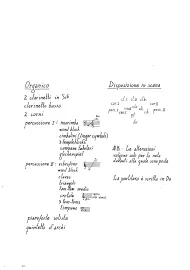 Organico
2 clarinetti in Sib
clarinetto basso
2 corni
percussione I: marimba
wood block
cimbalini (finger cymbals)
5 templeblocks
campane tubolari
glockenspiel
percussione II: vibrafono
wood block
claves
triangolo
tam-tam medio
crotali
3 tom-toms
timpano
pianoforte solista
quintetto d'archi
Disposizione in scena
perc I
perc II
pf
dir
NB - Le alterazioni
valgono solo per la nota
davanti alla quale sono poste
La partitura è scritta in Do